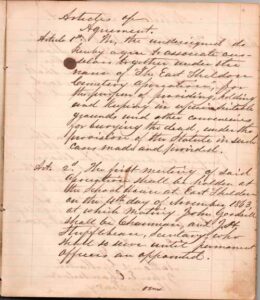 Articles of
Agreement.
Article 1st We, the undersigned do
hereby agree to associate our-
selves together under the
name of The East Sheldon
Cemetery Association, for
the purpose of providing, holding
and keeping in repair suitable
grounds and other conveniences
for burying the dead, under the
provisions of the Statute in such
cases made and provided.
Art. 2d The first meeting of said
Association shall be holden at
the School house at East Sheldon
on the day of November 1863,
at which Meeting John Goodsill
shall be Chairman, and
Secretary, who
shall so serve until permanent
officers are appointed.